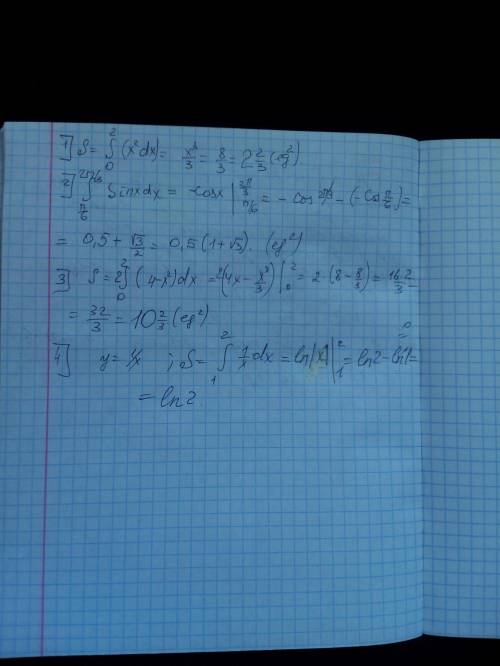 1] S = ∫₀² (x²dx) = x³/3 = 8/3 = 2 2/3 (eg²)
2] ∫_{π/6}^{2π/3} Sinxdx = -cosx |_{π/6}^{2π/3} = -cos 2π/3 - (-Cos π/6) =
= 0,5 + √3/2 = 0,5 (1+√3). (eg²)
3] S = 2∫₀² (4-x²)dx = 2(4x - x³/3)|₀² = 2·(8 - 8/3) = 16·2/3 =
= 32/3 = 10 2/3 (eg²)
4] y = 1/x ; S = ∫₁² 1/x dx = ln|x| |₁² = ln2 - ln1 =
0
= ln2